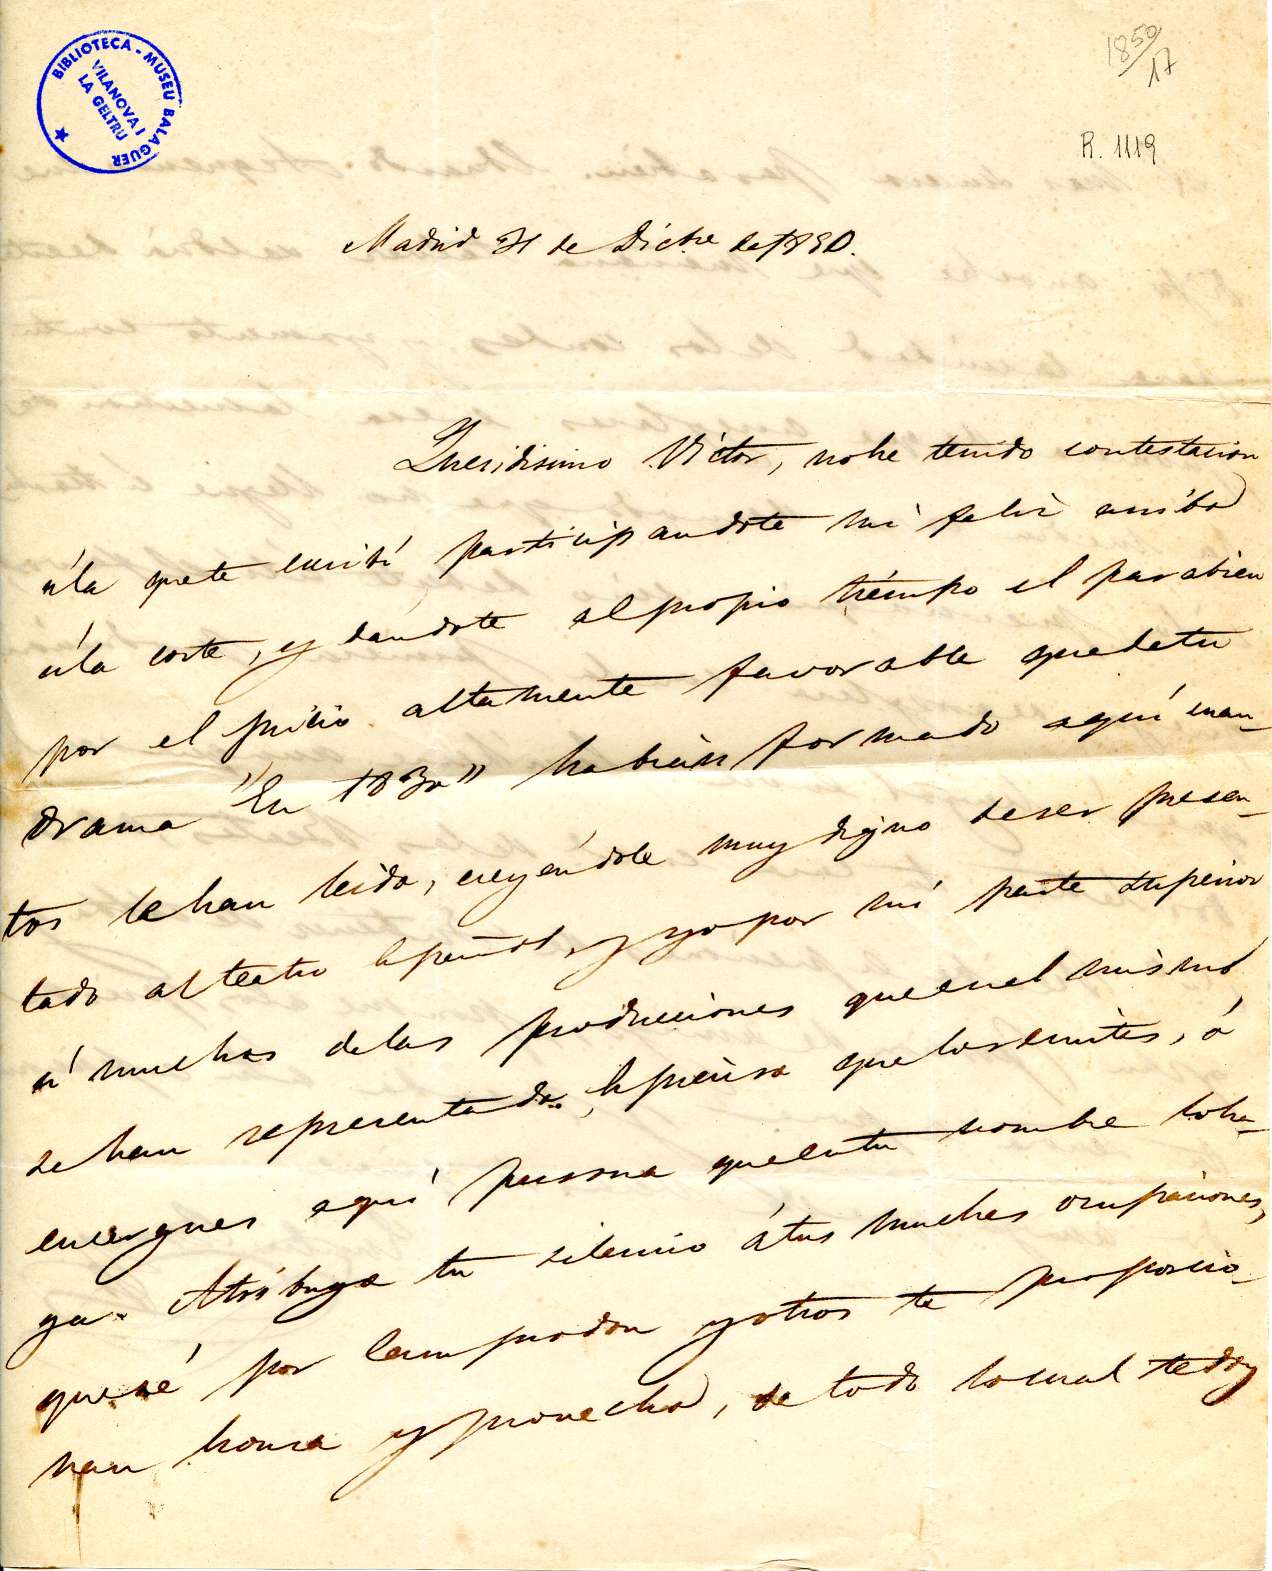 BIBLIOTECA - MUSEU BALAGUER
VILANOVA I
LA GELTRU
1850/17
R. 1119
Madrid 31 de Dicbre de 1850.
Queridisimo Víctor, no he tenido contestacion
á la que te escribí participandote mi feliz arribo
á la corte, y dandote al propio tiempo el parabien
por el juicio altamente favorable que de tu
drama "En 1830" habian formado aquí cuan-
tos le han leido, creyéndole muy digno de ser presen-
tado al teatro Español, y yo por mi parte superior
á muchas de las producciones que en el mismo
se han representado. Es preciso que los remites, ó
encargues aquí persona que en tu nombre lo ha-
ga. Atribuyo tu silencio á tus muchas ocupaciones,
que sé por Camprodon y otros te proporcio-
nan honra y provecho, de todo lo cual te doy